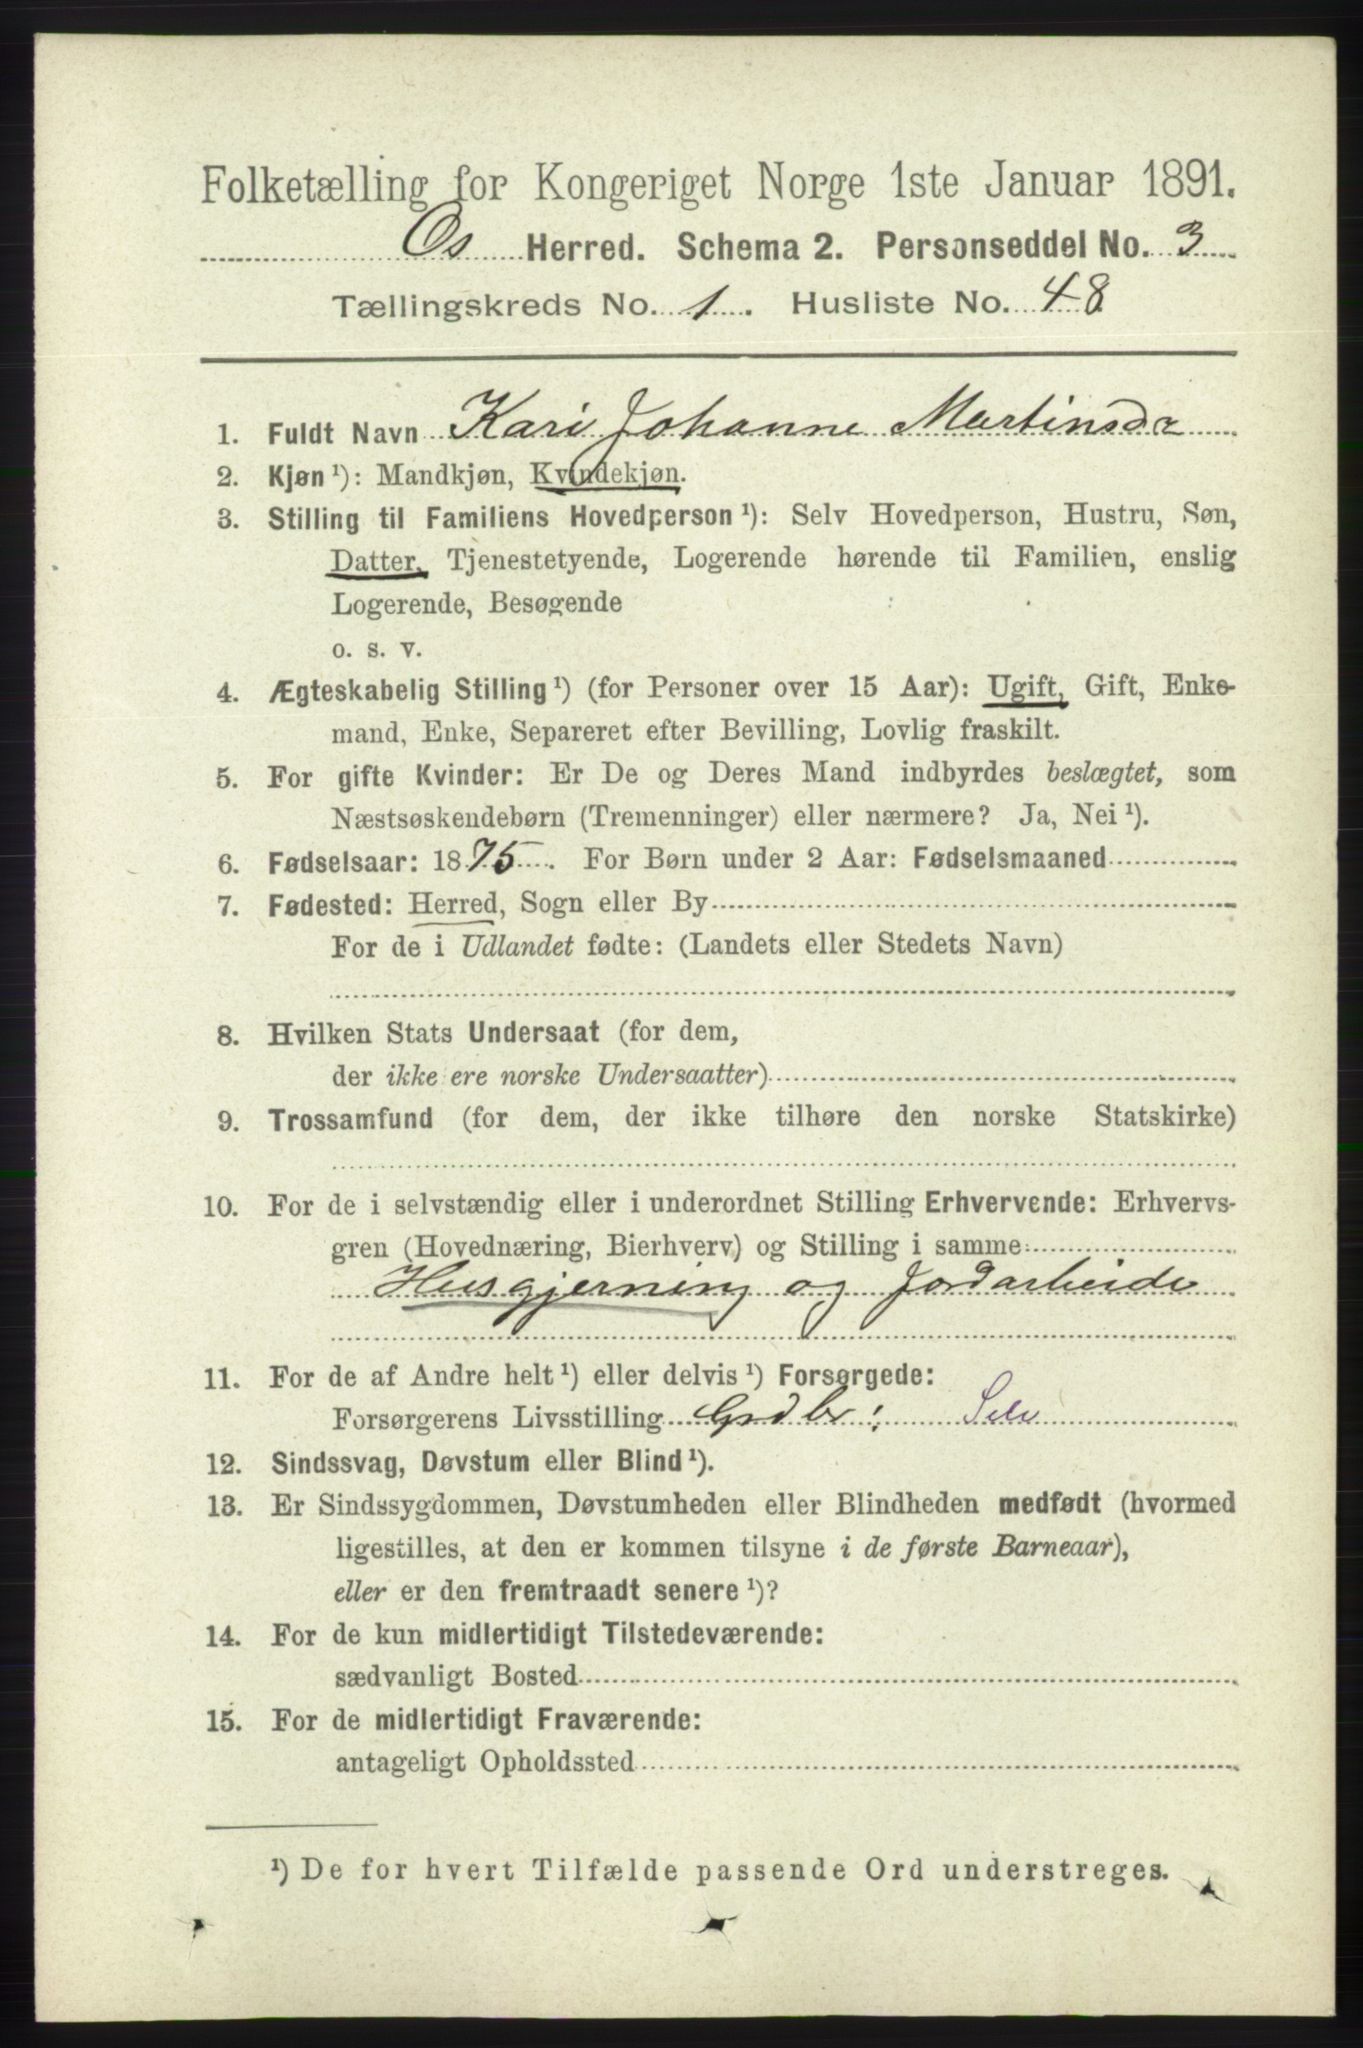 Folketælling for Kongeriget Norge 1ste Januar 1891.
Os Herred. Schema 2. Personseddel No. 3
Tællingskreds No. 1. Husliste No. 48
1. Fuldt Navn Kari Johanne Martinsdr
2. Kjøn ¹): Mandkjøn, Kvindekjøn.
3. Stilling til Familiens Hovedperson ¹): Selv Hovedperson, Hustru, Søn,
Datter, Tjenestetyende, Logerende hørende til Familien, enslig
Logerende, Besøgende
o. s. v.
4. Ægteskabelig Stilling ¹) (for Personer over 15 Aar): Ugift, Gift, Enke-
mand, Enke, Separeret efter Bevilling, Lovlig fraskilt.
5. For gifte Kvinder: Er De og Deres Mand indbyrdes beslægtet, som
Næstsøskendebørn (Tremenninger) eller nærmere? Ja, Nei ¹).
6. Fødselsaar: 1875. For Børn under 2 Aar: Fødselsmaaned
7. Fødested: Herred, Sogn eller By
For de i Udlandet fødte: (Landets eller Stedets Navn)
8. Hvilken Stats Undersaat (for dem,
der ikke ere norske Undersaatter)
9. Trossamfund (for dem, der ikke tilhøre den norske Statskirke)
10. For de i selvstændig eller i underordnet Stilling Erhvervende: Erhvervs-
gren (Hovednæring, Bierhverv) og Stilling i samme
Husgjerning og Jordarbeide
11. For de af Andre helt ¹) eller delvis ¹) Forsørgede:
Forsørgerens Livsstilling Grdbr: Selv
12. Sindssvag, Døvstum eller Blind ¹).
13. Er Sindssygdommen, Døvstumheden eller Blindheden medfødt (hvormed
ligestilles, at den er kommen tilsyne i de første Barneaar),
eller er den fremtraadt senere ¹)?
14. For de kun midlertidigt Tilstedeværende:
sædvanligt Bosted
15. For de midlertidigt Fraværende:
antageligt Opholdssted
¹) De for hvert Tilfælde passende Ord understreges.